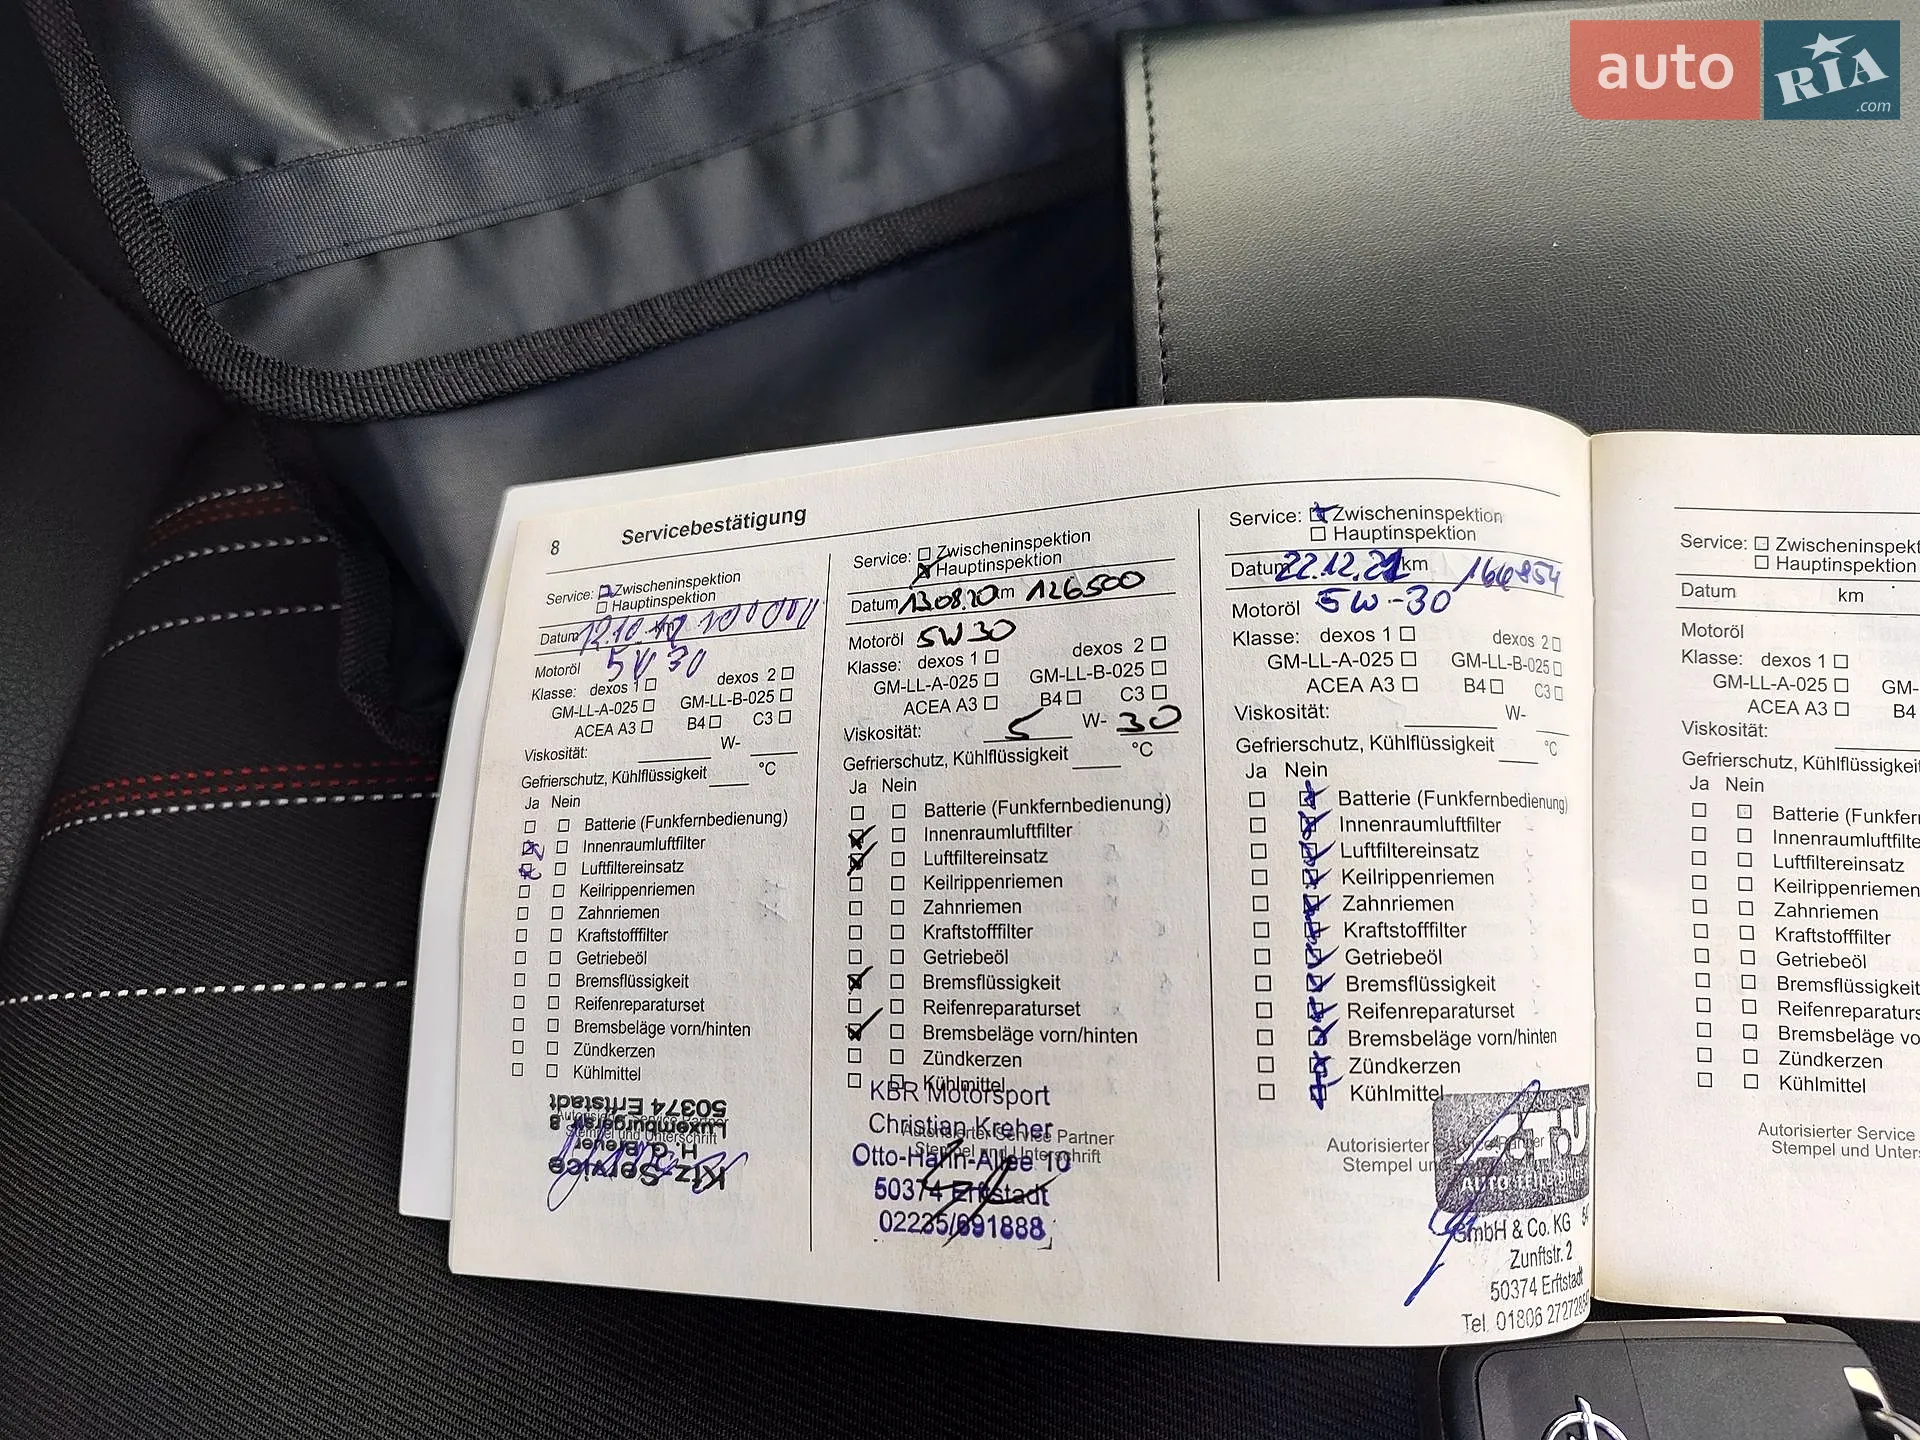 auto
RIA
.com
8
Servicebestätigung
Service: Zwischeninspektion
Hauptinspektion
Datum 12.10. km
Motoröl 5W30
Klasse: dexos 1 dexos 2
GM-LL-A-025 GM-LL-B-025
ACEA A3 B4 C3
Viskosität: W-
Gefrierschutz, Kühlflüssigkeit °C
Ja Nein
Batterie (Funkfernbedienung)
Innenraumluftfilter
Luftfiltereinsatz
Keilrippenriemen
Zahnriemen
Kraftstofffilter
Getriebeöl
Bremsflüssigkeit
Reifenreparaturset
Bremsbeläge vorn/hinten
Zündkerzen
Kühlmittel
Autorisierter Service Partner
Stempel und Unterschrift
Kfz-Service
Luxemburgerstr. 8
50374 Erftstadt
Service: Zwischeninspektion
Hauptinspektion
Datum 13.08.20 km 126500
Motoröl 5W30
Klasse: dexos 1 dexos 2
GM-LL-A-025 GM-LL-B-025
ACEA A3 B4 C3
Viskosität: 5 W- 30
Gefrierschutz, Kühlflüssigkeit °C
Ja Nein
Batterie (Funkfernbedienung)
Innenraumluftfilter
Luftfiltereinsatz
Keilrippenriemen
Zahnriemen
Kraftstofffilter
Getriebeöl
Bremsflüssigkeit
Reifenreparaturset
Bremsbeläge vorn/hinten
Zündkerzen
Kühlmittel
KBR Motorsport
Christian Kreher
Autorisierter Service Partner
Stempel und Unterschrift
Otto-Hahn-Allee 10
50374 Erftstadt
02235/691888
Service: Zwischeninspektion
Hauptinspektion
Datum 22.12.21 km 166854
Motoröl 5W-30
Klasse: dexos 1 dexos 2
GM-LL-A-025 GM-LL-B-025
ACEA A3 B4 C3
Viskosität: W-
Gefrierschutz, Kühlflüssigkeit °C
Ja Nein
Batterie (Funkfernbedienung)
Innenraumluftfilter
Luftfiltereinsatz
Keilrippenriemen
Zahnriemen
Kraftstofffilter
Getriebeöl
Bremsflüssigkeit
Reifenreparaturset
Bremsbeläge vorn/hinten
Zündkerzen
Kühlmittel
Autorisierter Service Partner
Stempel
A.T.U
AUTO TEILE
GmbH & Co. KG
Zunftstr. 2
50374 Erftstadt
Tel. 01806
Service: Zwischeninspekt
Hauptinspektion
Datum km
Motoröl
Klasse: dexos 1
GM-LL-A-025 GM-
ACEA A3 B4
Viskosität:
Gefrierschutz, Kühlflüssigkeit
Ja Nein
Batterie (Funkfer
Innenraumluftfilte
Luftfiltereinsatz
Keilrippenriemen
Zahnriemen
Kraftstofffilter
Getriebeöl
Bremsflüssigkeit
Reifenreparaturs
Bremsbeläge vo
Zündkerzen
Kühlmittel
Autorisierter Service
Stempel und Unters